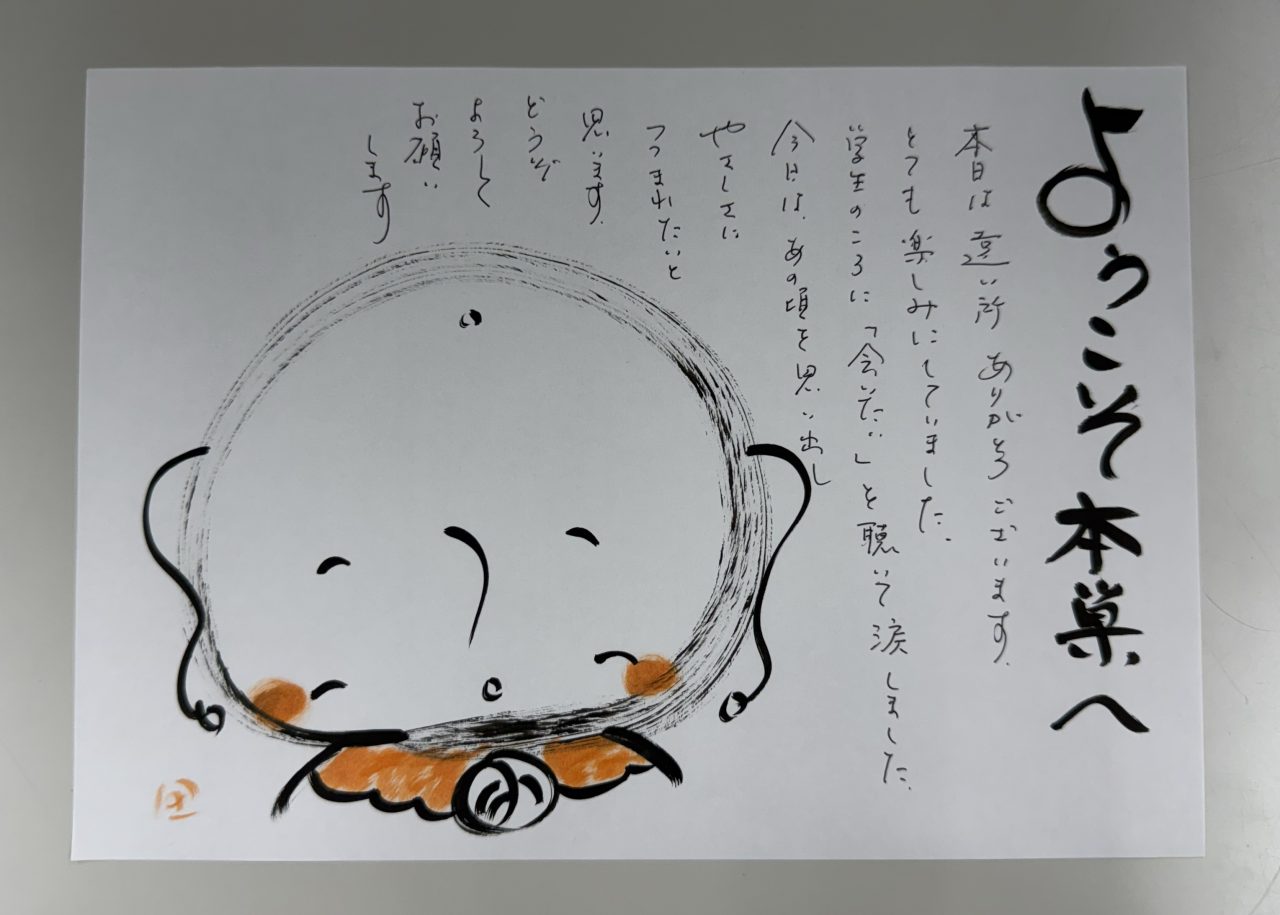 ようこそ本巣へ
本日は遠い所 ありがとうございます。
とても楽しみにしていました。
学生のころに「会いたい」と聴いて涙しました。
今日は、あの頃を思い出し
やさしさに
つつまれたいと
思います。
どうぞ
よろしく
お願い
します